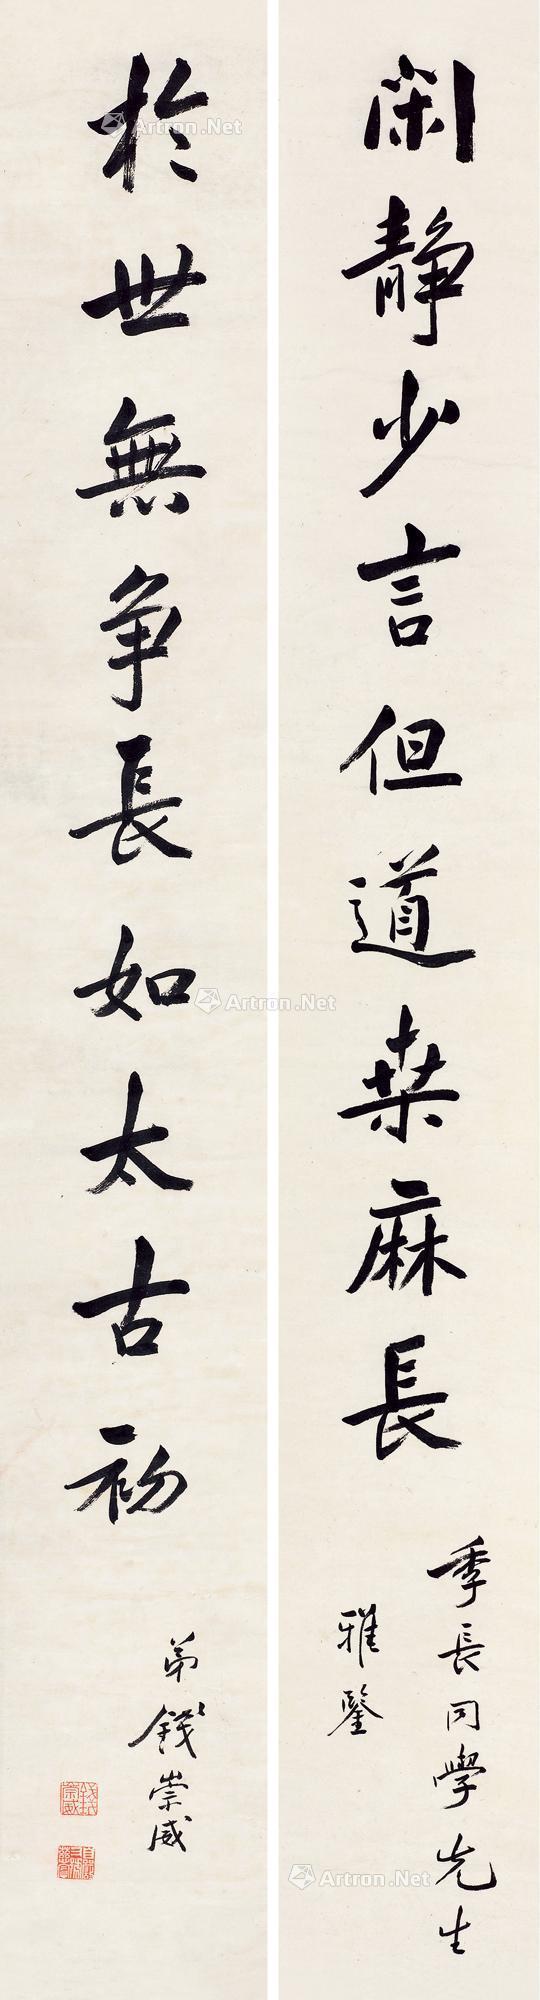 閑靜少言但道桒麻長
季長同學先生
雅鑒
於世無爭長如太古初
弟錢崇威
Artron.Net
Artron.Net
Artron.Net